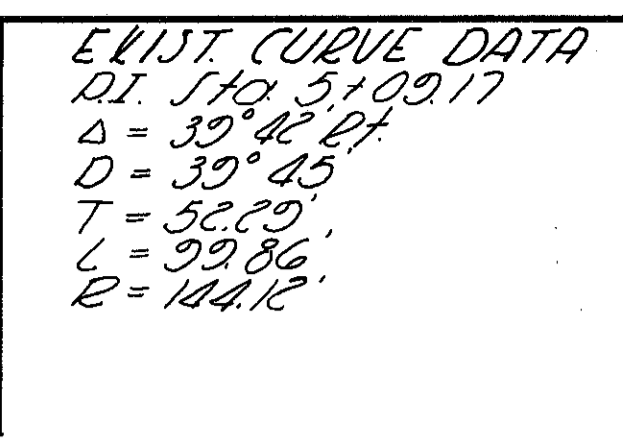 EXIST. CURVE DATA
P.I. Sta. 5+09.17
Δ = 39°42' Rt.
D = 39°45'
T = 52.29'
L = 99.86'
R = 144.12'